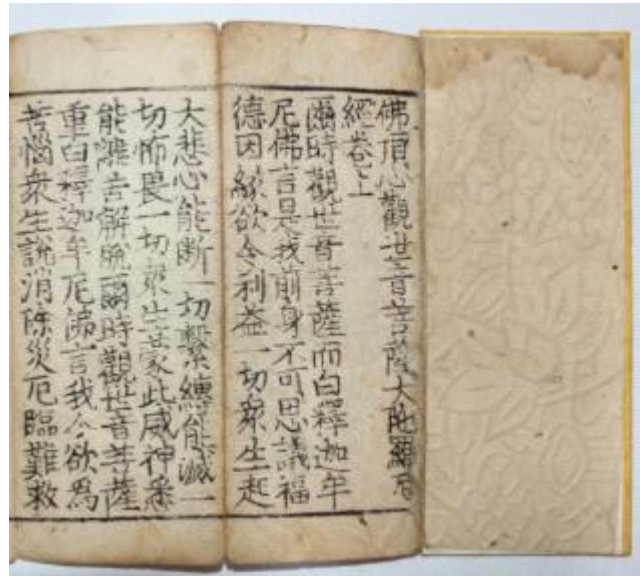 佛頂心觀世音菩薩大陀羅尼
經卷上
爾時觀世音菩薩而白釋迦牟
尼佛言是我前身不可思議福
德因緣欲令利益一切衆生起
大悲心能斷一切繫縛能滅一
切怖畏一切衆生蒙此威神悉
能離苦解脫爾時觀世音菩薩
重白釋迦牟尼佛言我今欲為
苦惱衆生說消除災厄臨難救